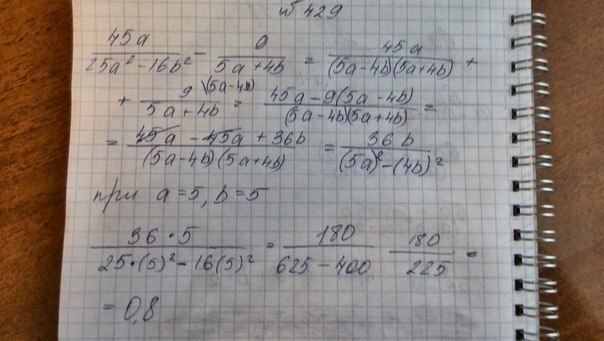 № 429
45a / 25a² - 16b² - 9 / 5a + 4b = 45a / (5a-4b)(5a+4b) +
+ 9 \(5a-4b) / 5a + 4b = 45a - 9(5a - 4b) / (5a-4b)(5a+4b) =
= 45a - 45a + 36b / (5a-4b)(5a+4b) = 36b / (5a)² - (4b)²
при a = 5, b = 5
36 · 5 / 25·(5)² - 16(5)² = 180 / 625 - 400 180 / 225 =
= 0,8